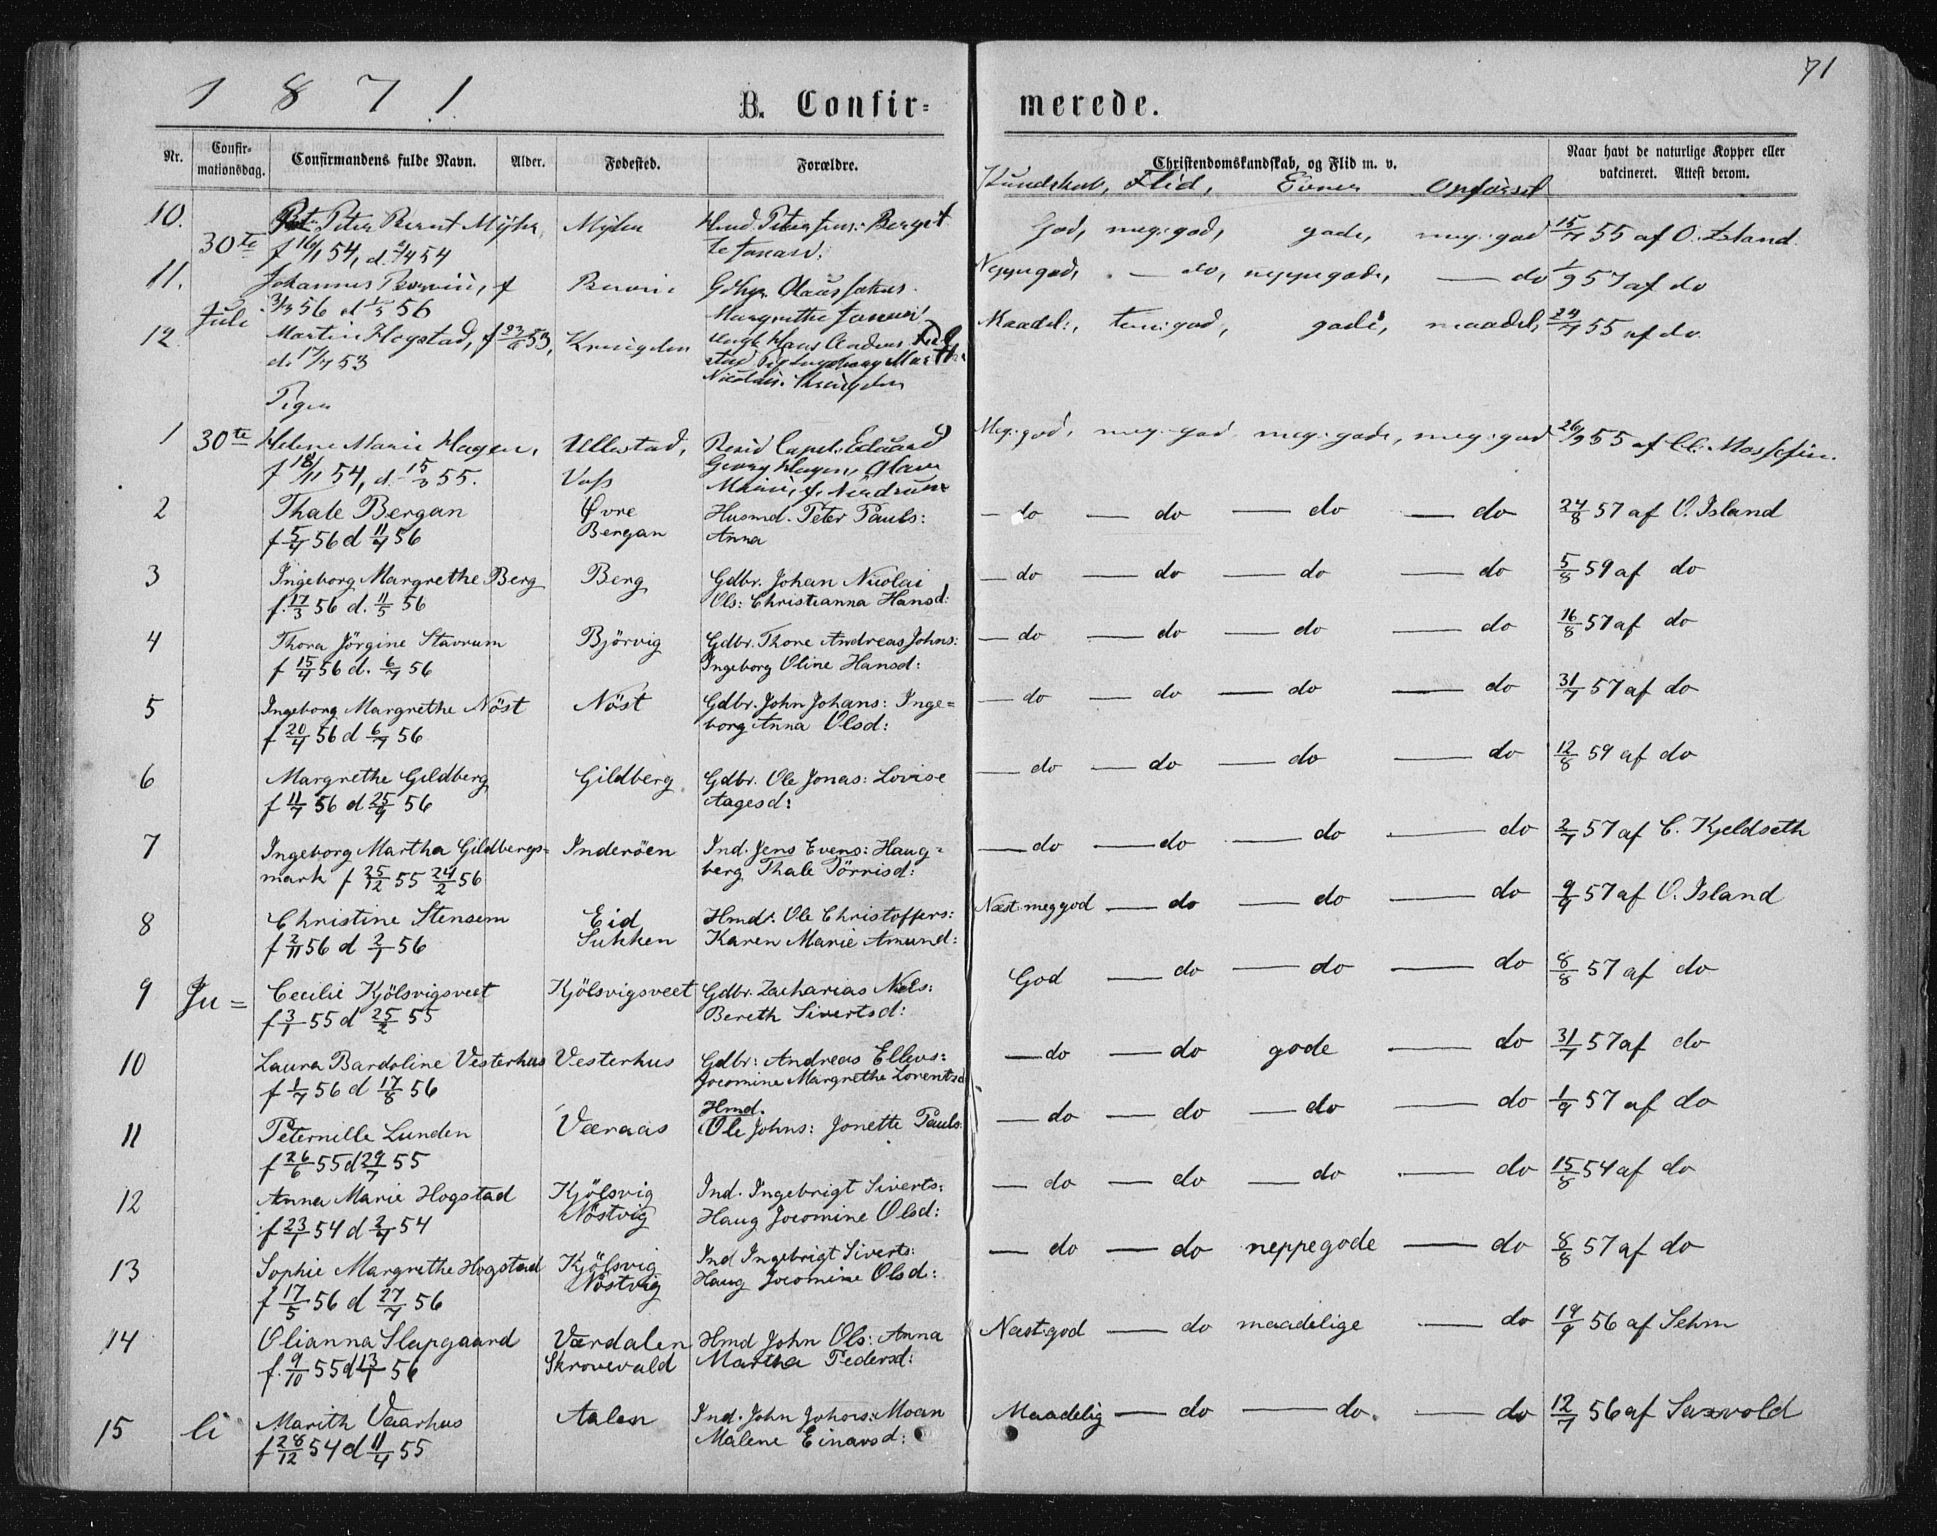 1871
B. Confir=
merede.
71
Nr.
Confir-
mationsdag.
Confirmandens fulde Navn.
Alder.
Fødested.
Forældre.
Christendomskundskab, og Flid m. v.
Naar havt de naturlige Kopper eller
vakcineret. Attest derom.
Kundskab, Flid, Evner Opførsel
10. Peter Bernt Myhr, Myhr
God, meg: god, gode, meg: god 15/7 55 af O. Island
30te f 16/1 54, d. 2/4 54
11. Johannes f
Neppe god, — do, neppe gode, — do 1/9 57 af do
3/3 56 d 1/5 56
Juli
12 Martin Hogstad, f 23/6 53,
Maadel:, temgod, gode, maadel, 24/7 55 af do.
d. 17/7 53
Piger
1 30te Helene Marie Hagen, Ullestad, Resid. Capel. Eduard
Meg: god, meg: god meg: gode, meg: god 26/9 55 af Cl:
f 18/11 54, d. 15/3 55. Voss Georg Hagen, Olava
2 Thale Bergan Øvre Husmd. Peter Pauls:
— do — do — do — do 24/8 57 af O. Island
f 5/4 56 d 11/4 56 Bergan Anna
3 Ingeborg Margrethe Berg Berg Gdbr. Johan Nicolai
— do — do — do — do 5/8 59 af do
f. 17/3 56 d. 11/5 56 Ols: Christianna Hansd:
4 Thora Jörgine Stavrum Björvig Gdbr. Thore Andreas Johns:
— do — do — do — do 16/8 57 af do
f 15/4 56 d. 6/7 56 Ingeborg Oline Hansd:
5 Ingeborg Margrethe Nöst Nöst Gdbr. John Johans: Inge=
— do — do — do — do 31/7 57 af do
f 20/4 56 d 6/7 56 borg Anna Olsd:
6 Margrethe Gildberg Gildberg Gdbr. Ole Jonas: Lovise
— do — do — do — do 12/8 59 af do
f 11/7 56 d 25/9 56 Aagesd:
7 Ingeborg Martha Gildbergs= Inderöen Ind. Jens Evens: Haug=
— do — do — do — do 2/7 57 af C. Kjeldseth
mark f 25/12 55 24/2 56 berg Thale Törrisd:
8 Christine Stensem Eid Hmdr. Ole Christoffers:
Næst meg god — do — do — do 9/9 57 af O. Island
f 2/11 56 d 2/1 56 Sukken Karen Marie Amund:
9 Ju= Cecilie Kjölsvigsveet Kjölsvigsveet Gdbr. Zacharias Niels:
God — do — do — do 8/8 57 af do
f 3/1 55 d 25/2 55 Bereth Sivertsd:
10 Laura Bardoline Vesterhus Vesterhus Gdbr: Andreas Ellevs:
— do — do gode — do 31/7 57 af do
f 1/7 56 d 17/8 56 Jocomine Margrethe Lorentsd
Hmd.
11 Peternille Lunden Væraas Ole Johns: Jonette Pauls:
— do — do — do — do 1/9 57 af do
f 26/6 55 d 29/7 55
12 Anna Marie Hogstad Kjölsvig Ind. Ingebrigt Siverts:
— do — do — do — do 15/8 54 af do
f 23/1 54 d 2/4 54 Nöstvig Haug Jocomine Olsd:
13 Sophie Margrethe Hogstad Kjölsvig Ind Ingebrigt Siverts:
— do — do neppegode — do 8/8 57 af do
f 17/5 56 d 27/7 56 Nöstvig Haug Jocomine Olsd:
14 Olianna Slapgaard Værdalen Hmd John Ols: Anna
Næst god — do maadelige — do 19/9 56 af Sehm
f. 9/10 55 d 13/1 56 Skrovevald Martha Pedersd:
15 li Marith Vaarhus Aalen Ind. John Johors: Moan
Maadelig — do — do. — do 12/7 56 af Saxvold
f 28/12 54 d 11/4 55 Malene Einarsd: